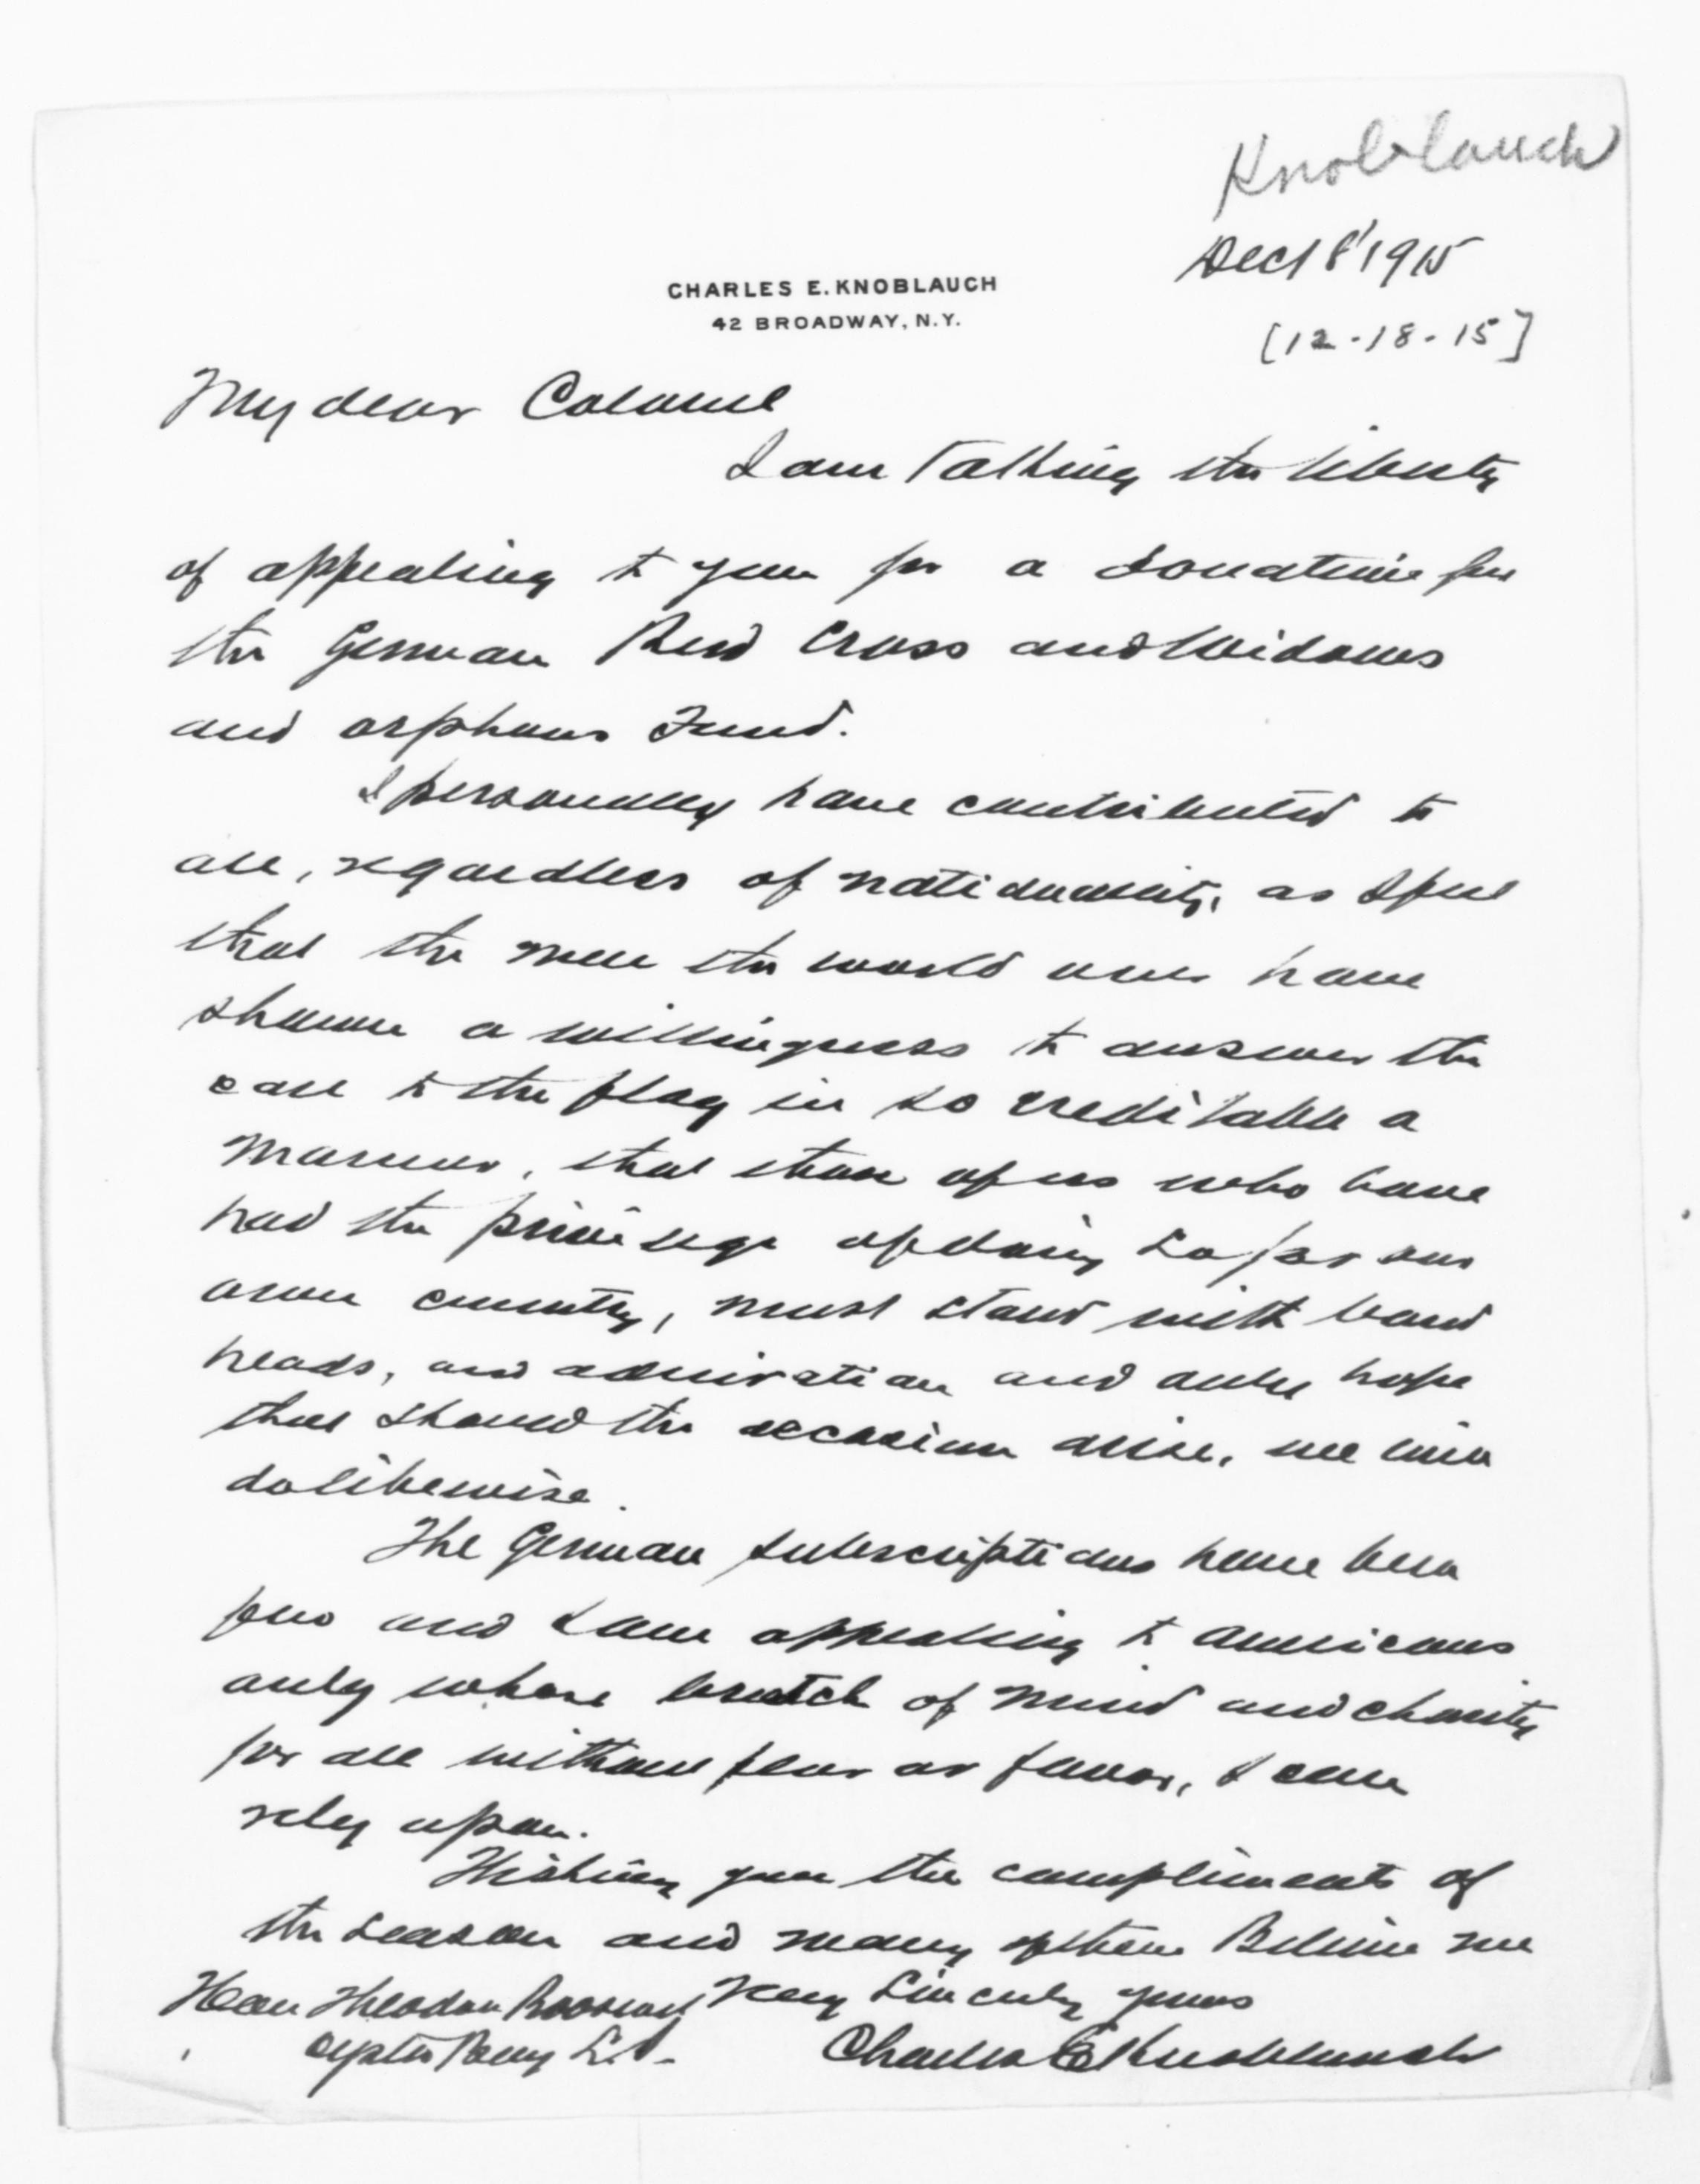 Knoblauch
Dec 18' 1915
CHARLES E. KNOBLAUCH
42 BROADWAY, N.Y.
[12-18-15]
My dear Colonel
I am Talking the liberty
of appealing to you for a donation for
the German Red Cross and Widows
and orphans Fund.
I personally have contributed to
all, regardless of nationality, as I feel
that the men the world over have
shown a willingness to answer the
call to the flag in so creditable a
manner, that those of us who have
had the privilege of doing so for our
own country, must stand with bared
heads, and admiration and only hope
that should the occasion arise, we will
do likewise.
The German subscriptions have been
few and I am appealing to Americans
only whose breadth of mind and charity
for all without fear or favor, I can
rely upon.
Wishing you the compliments of
the season and many of them Believe me
Hon Theodore Roosevelt Very Sincerely yours
Oyster Bay L.I. Charles E Knoblauch